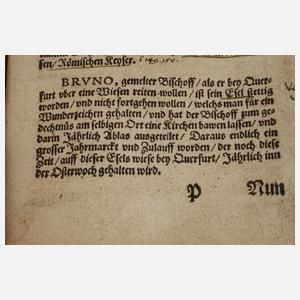 sen/Römischen Keyser. 1 149.150.
BRVNO, gemelter Bischoff/als er bey Quer-
furt vber eine Wiesen reiten wollen/ist sein Esel stettig
worden/vnd nicht fortgehen wollen/welchs man für ein
Wunderzeichen gehalten/vnd hat der Bischoff zum ge-
dechtnüs am selbigen Ort eine Kirchen bawen lassen/vnd
darin Jährlich Ablas ausgeteilet/Daraus endlich ein
grosser Jahrmarckt vnd Zulauff worden/der noch diese
Zeit/auff dieser Esels wiese bey Querfurt/Jährlich inn
der Osterwoch gehalten wird.
P Nun